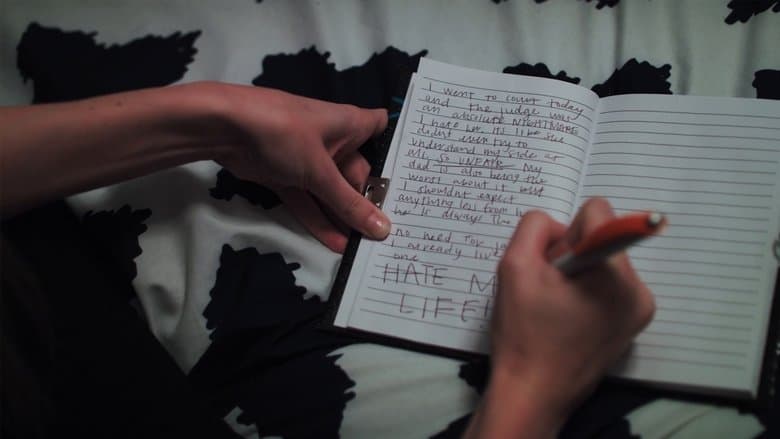 I went to court today
and the judge was
an absolute NIGHTMARE
I hate her its like she
didnt even try to
understand my side at
all. SO UNFAIR. My
dad is also being the
worst about it but
I shouldnt expect
anything less from
he is always the
no need for
I already live
one
HATE
LIFE!